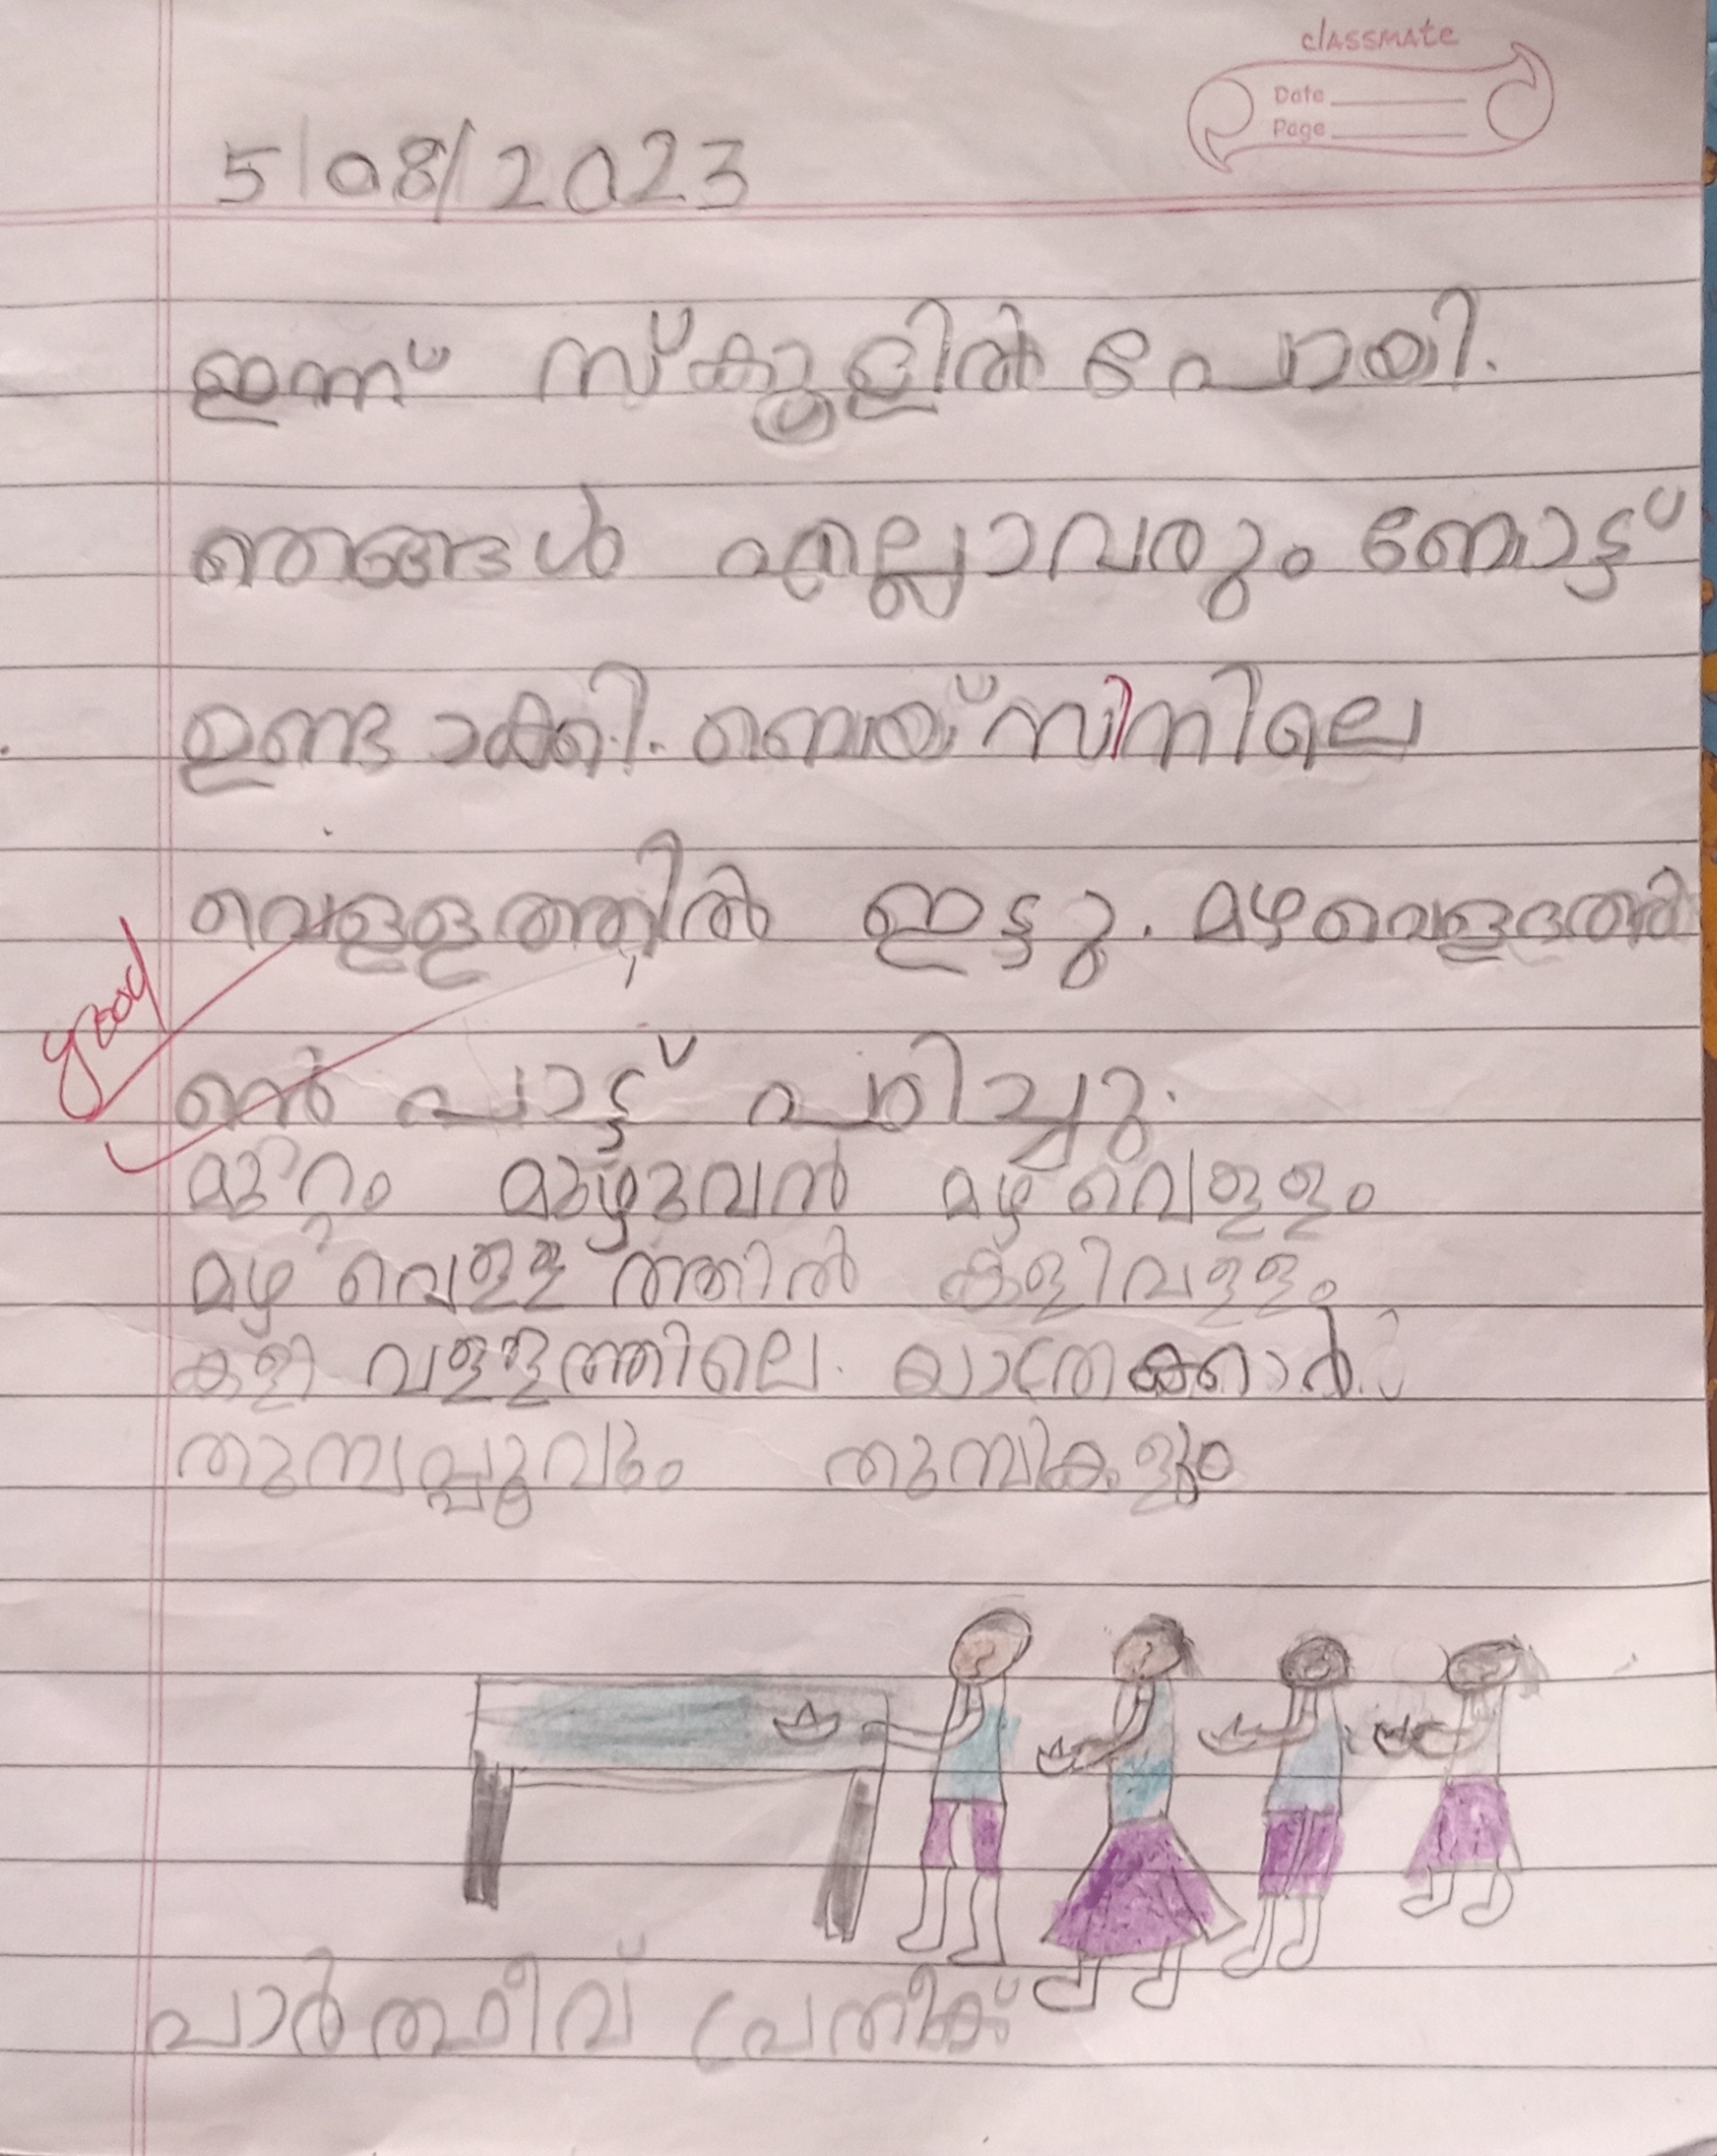 classmate
Date
Page
5/08/2023
ഇന്ന് സ്കൂളിൽ പോയി.
ഞങ്ങൾ എല്ലാവരും ബോട്ട്
ഉണ്ടാക്കി. ബെയ്സിനിലെ
വെള്ളത്തിൽ ഇട്ടു. മഴവെള്ളത്തി
good
ൻെ പാട്ട് പഠിച്ചു.
മുറ്റം മുഴുവൻ മഴവെള്ളം
മഴ വെള്ളത്തിൽ കളിവള്ളം
കളി വള്ളത്തിലെ യാത്രക്കാർ
തുമ്പപ്പൂവും തുമ്പികളും
പാർത്ഥീവ് പ്രതീക്